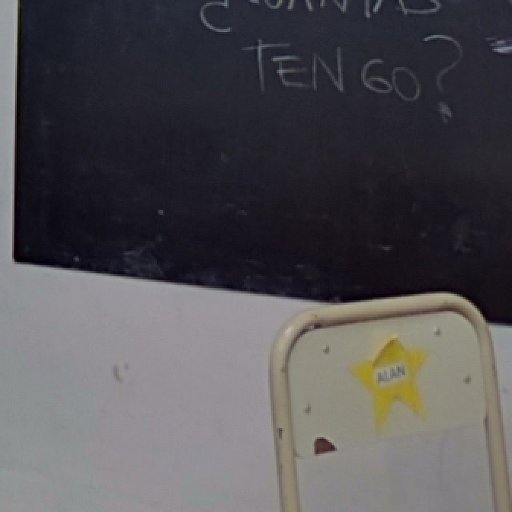 ¿CUANTAS
TENGO?
ALAN